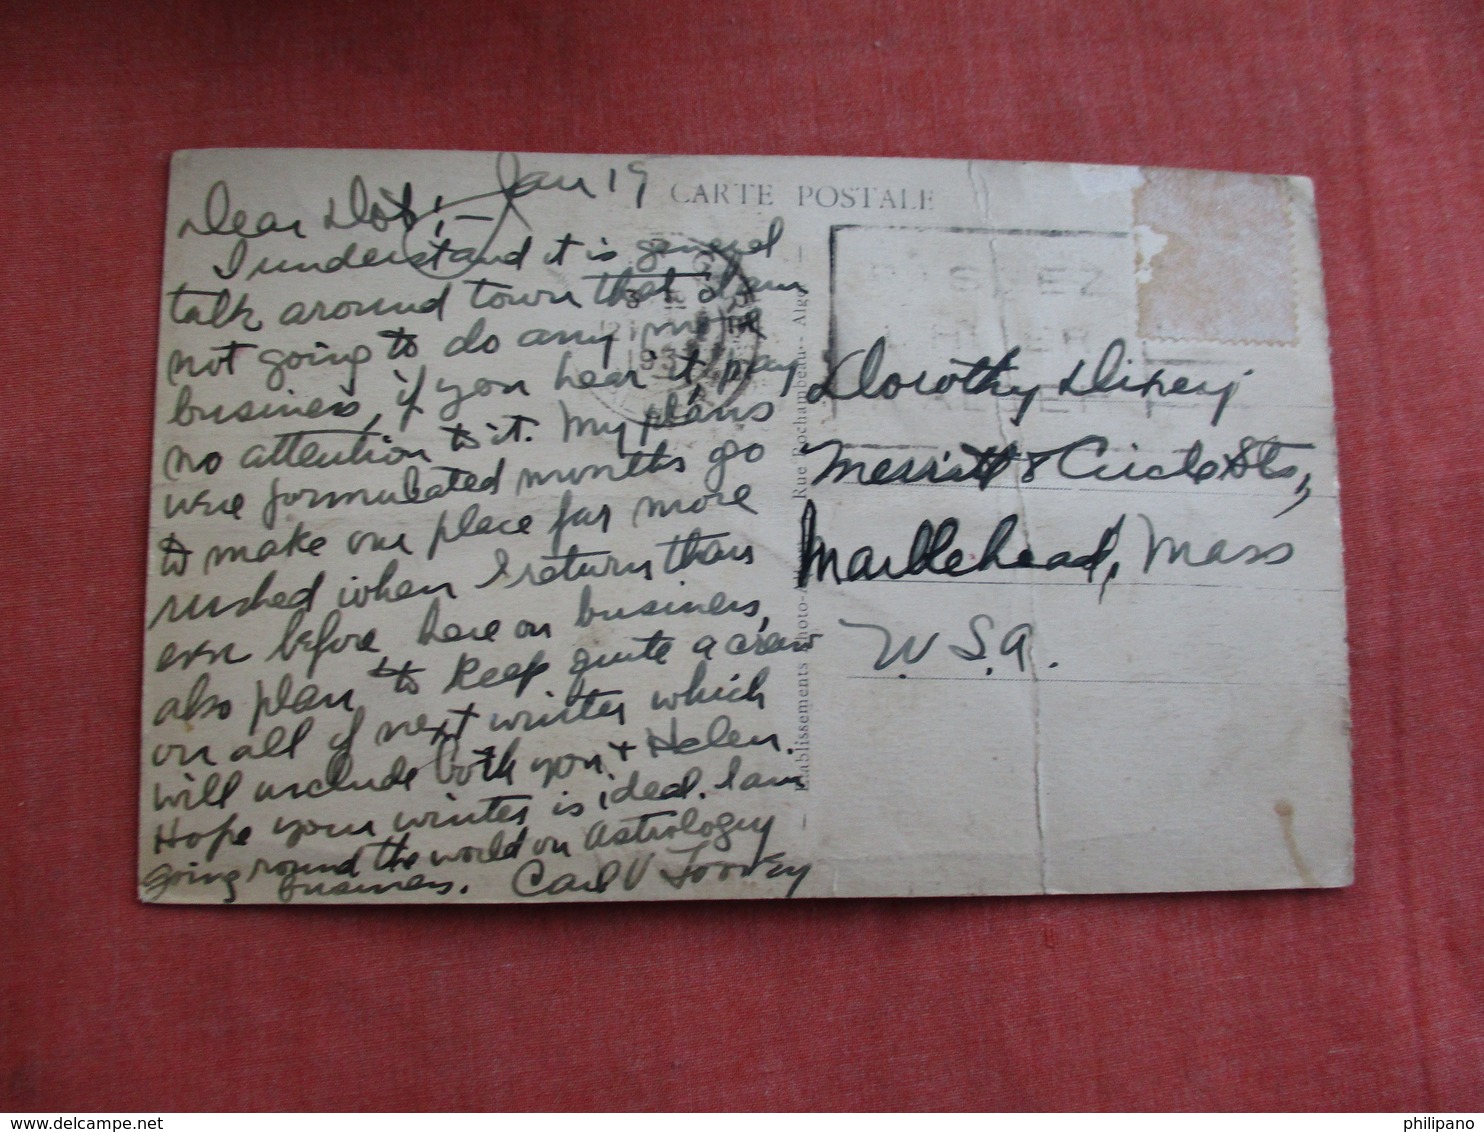 Jan 19
Dear Dot:—
I understand it is general
talk around town that I am
not going to do any more
business, if you hear it pay
no attention to it. My plans
were formulated months go
to make our place far more
rushed when I return than
ever before here on business,
also plan to keep quite a crew
on all of next winter which
will include both you & Helen.
Hope your winter is ideal. I am
going round the world on Astrology
business. Carl V
CARTE POSTALE
193
PASSEZ
L'HIVER
ALGER
Etablissements Photo- Rue Rochambeau - Alger
Dorothy
Merritt & Circle Sts,
Marblehead, Mass
U.S.A.
philipano
delcampe.net